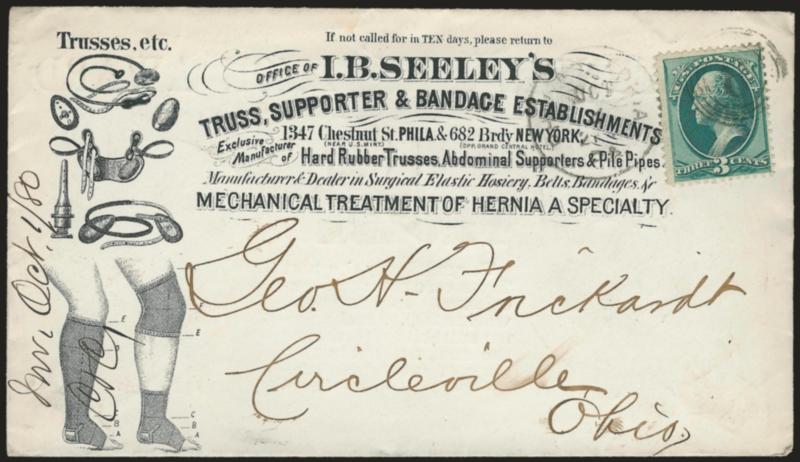 Trusses, etc.
If not called for in TEN days, please return to
OFFICE OF I.B. SEELEY'S
TRUSS, SUPPORTER & BANDAGE ESTABLISHMENTS
1347 Chestnut St. PHILA. & 682 Brdy NEW YORK.
(NEAR U.S. MINT) (OPP. GRAND CENTRAL HOTEL)
Exclusive Manufacturer of Hard Rubber Trusses, Abdominal Supporters & Pile Pipes.
Manufacturer & Dealer in Surgical Elastic Hosiery, Belts, Bandages, &c
MECHANICAL TREATMENT OF HERNIA A SPECIALTY.
U.S. POSTAGE
THREE 3 CENTS
Geo. H. Frickardt
Circleville
Ohio,
Oct. 1/80
E
E
C
B
A
B
A